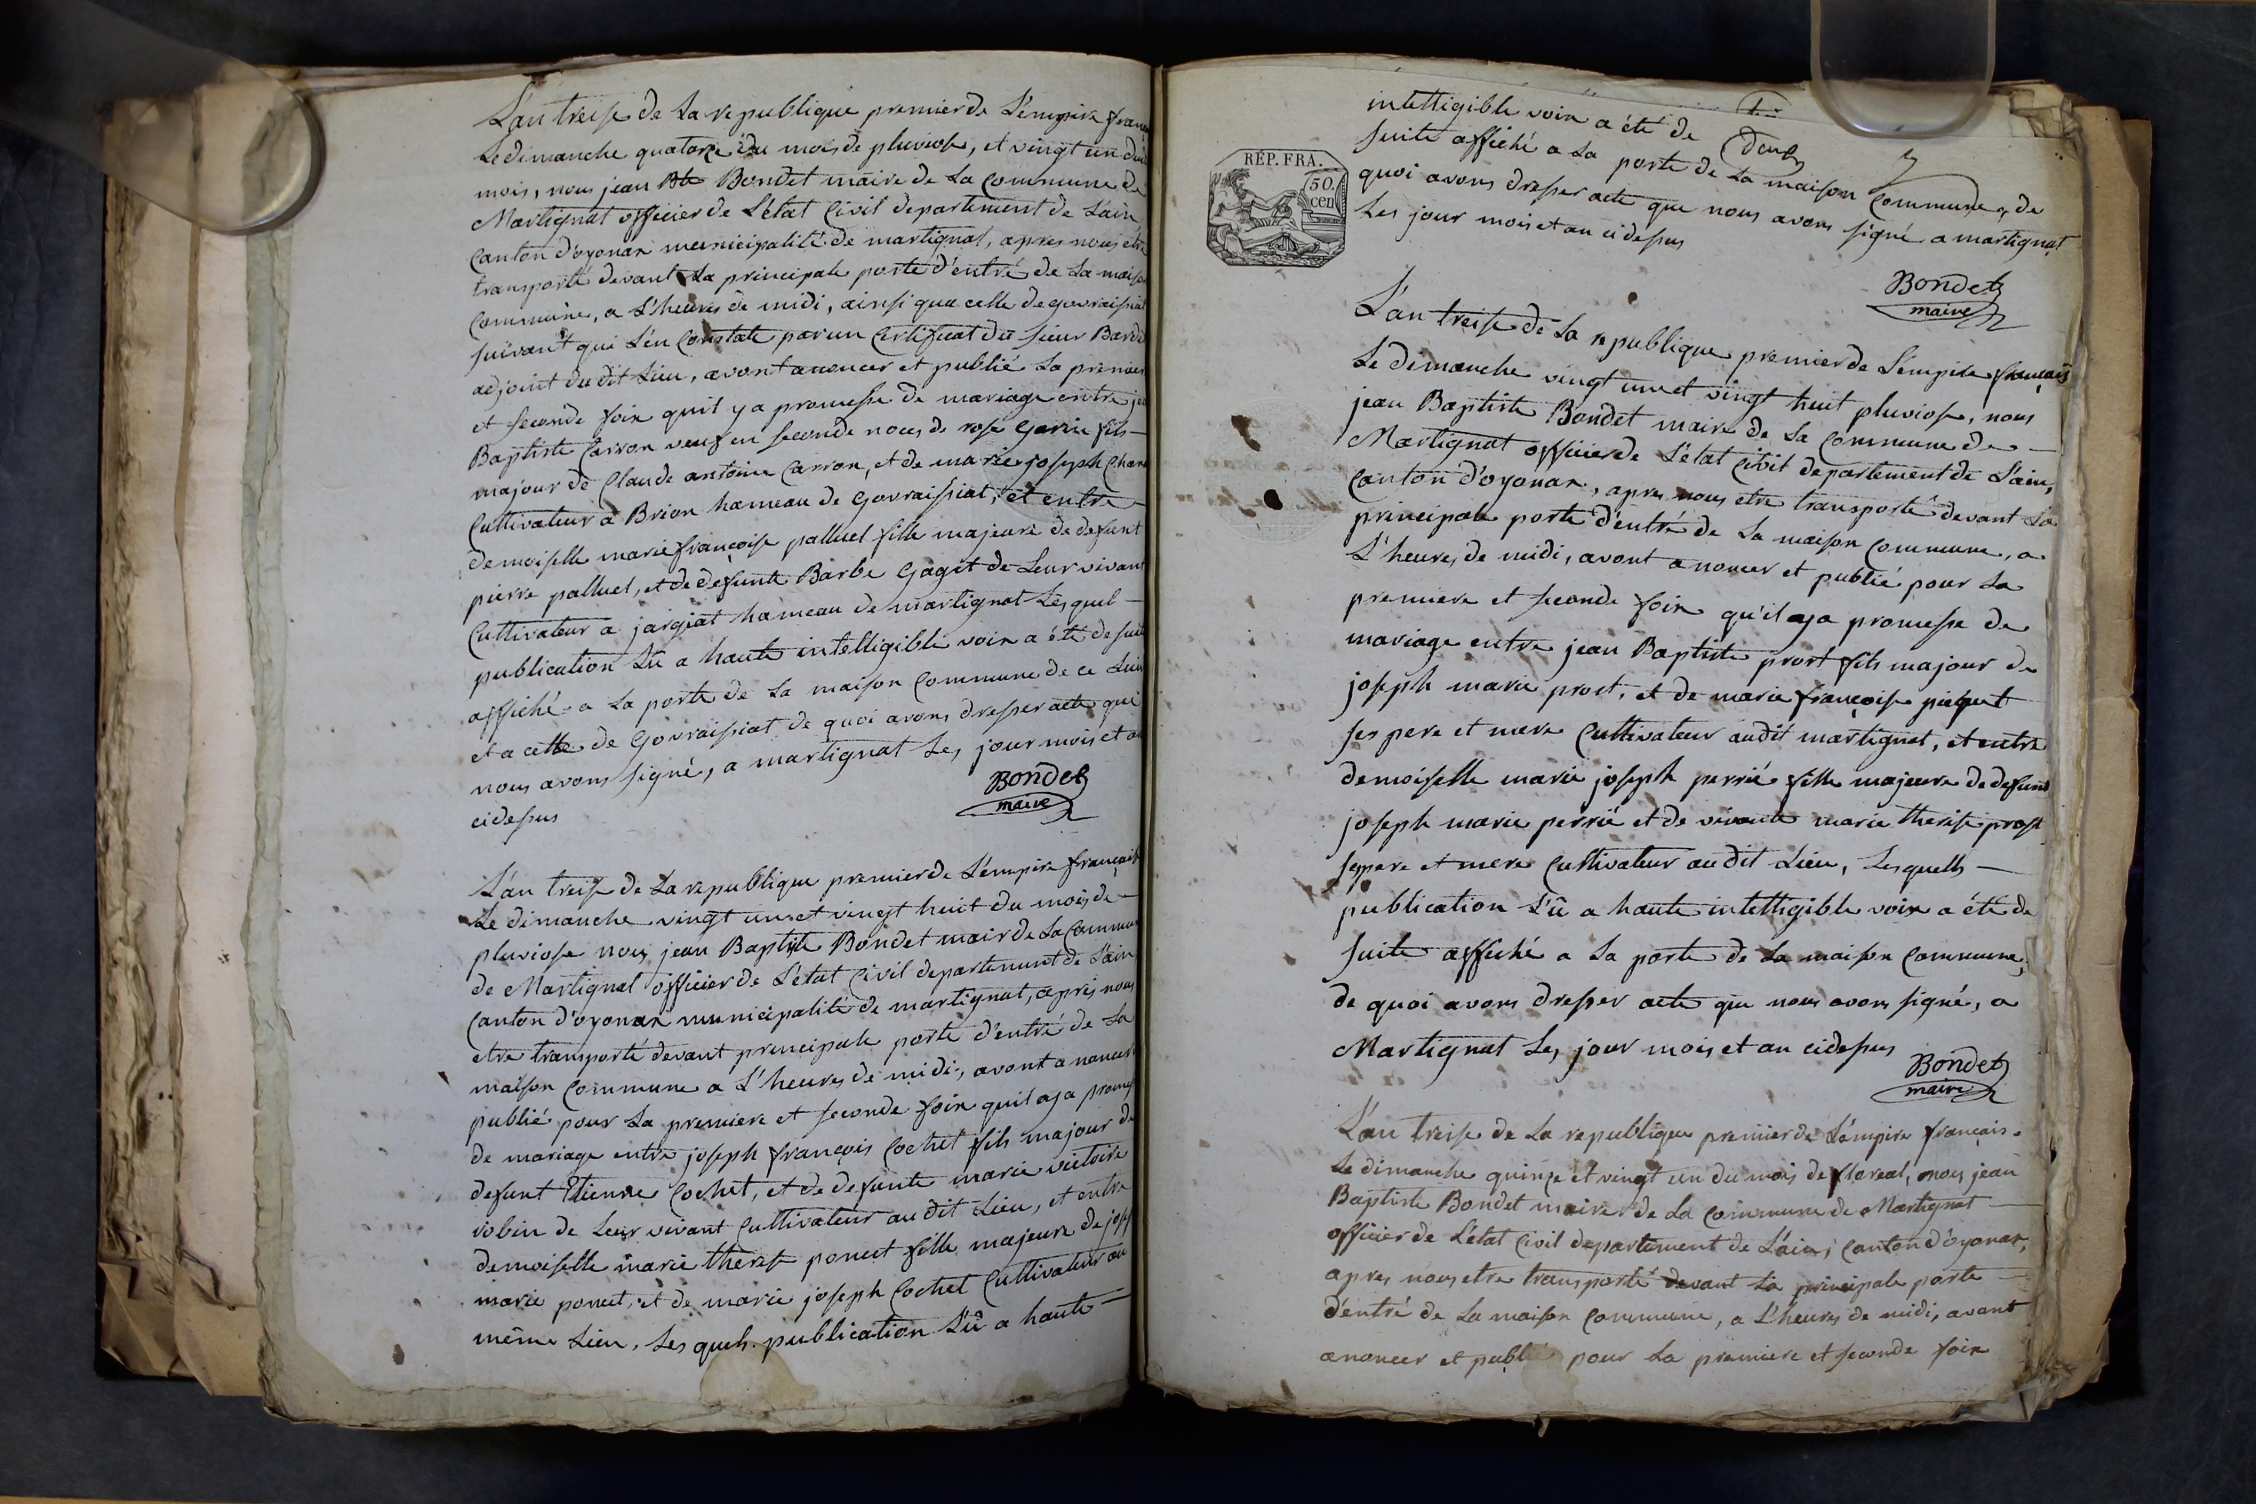 L'an treise de la republique premier de L'empire
Le dimanche quatorze du mois de pluviose, et vingt un dud
mois, nous jean Bte Bondet maire de La Commune de
Martignat officier de L'état Civil departement de L'ain
Canton d'oyonax municipalité de martignat, apres nous etre
transporté devant La principale porte d'entré de La maison
Commune, a L'heures de midi, ainsi que celle de govraissiat
suivant qui L'en Constate par un Certificat du sieur
adjoint du dit Lieu, avont anoncer et publié La premier
et seconde foix quil y a promesse de mariage entre jean
Baptiste Carron veuf en seconde noces de rose Gavin fils
majour de Claude antoine Carron, et de marie joseph
Cultivateur a Brion hameau de Govraissiat, et entre
demoiselle marie françoise palluel fille majeure de defunt
pierre palluel, et de defunte Barbe Gaget de Leur vivant
Cultivateur a jargiat hameau de martignat Lesquel
publication Lû a haute intelligible voix a été de suite
affiché a La porte de La maison Commune de ce Lieu
et a cette de Govraissiat de quoi avons dresser acte que
nous avons signé, a martignat Les jour mois et an
cidessus
Bondet
maire
L'an treise de La republique premier de L'émpire français
Le dimanche vingt un et vingt huit du mois de
pluviose nous jean Baptiste Bondet mair de La Commune
de Martignat officier de L'état Civil departement de L'ain
Canton d'oyonax municipalité de martignat, apres nous
etre transporté devant principale porte d'entré de La
maison Commune a L'heures de midi, avont anoncer
publié pour La premiere et seconde foix quil aja promess
de mariage entre joseph françois Cochet fils majour de
defunt Etienne Cochet, et de defunte marie victoire
robin de Leur vivant Cultivateur audit Lieu, et entre
demoiselle marie therese poncet fille majeure de josep
marie poncet, et de marie joseph Cochet Cultivateur au
même Lieu, Les quels publication Lû a haute
intelligible voix a été de
deux
suite affiché a La porte de La maison Commune, de
quoi avons dresser acte que nous avons signé a martignat
Les jour mois et an cidessus
RÉP. FRA.
50.
cen
Bondet
maire
L'an treise de La republique premier de L'émpire français
Le dimanche vingt un et vingt huit pluviose, nous
jean Baptiste Bondet maire de La Commune de
Martignat officier de L'état Civil departement de L'ain,
Canton d'oyonax, apres nous etre transporté devant La
principale porte d'entré de La maison Commune, a
L'heures de midi, avont anoncer et publié pour La
premiere et seconde foix qu'il aja promesse de
mariage entre jean Baptiste prost fils majour de
joseph marie prost, et de marie françoise piquet
ses pere et mere Cultivateur audit martignat, et entre
demoiselle marie joseph perrié fille majeure de defunt
joseph marie perrié et de vivante marie therese prost
ses pere et mere Cultivateur audit Lieu, Lesquells
publication Lû a haute intelligible voix a été de
suite affiché a La porte de La maison Commune,
de quoi avons dresser acte que nous avons signé, a
Martignat Les jour mois et an cidessus
Bondet
maire
L'an treise de La republique premier de L'émpire français
Le dimanche quinze et vingt un du mois de floreal, nous jean
Baptiste Bondet maire de La Commune de Martignat
officier de L'état Civil departement de L'ain, Canton d'oyonax,
apres nous etre transporté devant La principale porte
d'entré de La maison Commune, a L'heures de midi, avant
anoncer et publié pour La premiere et seconde foix